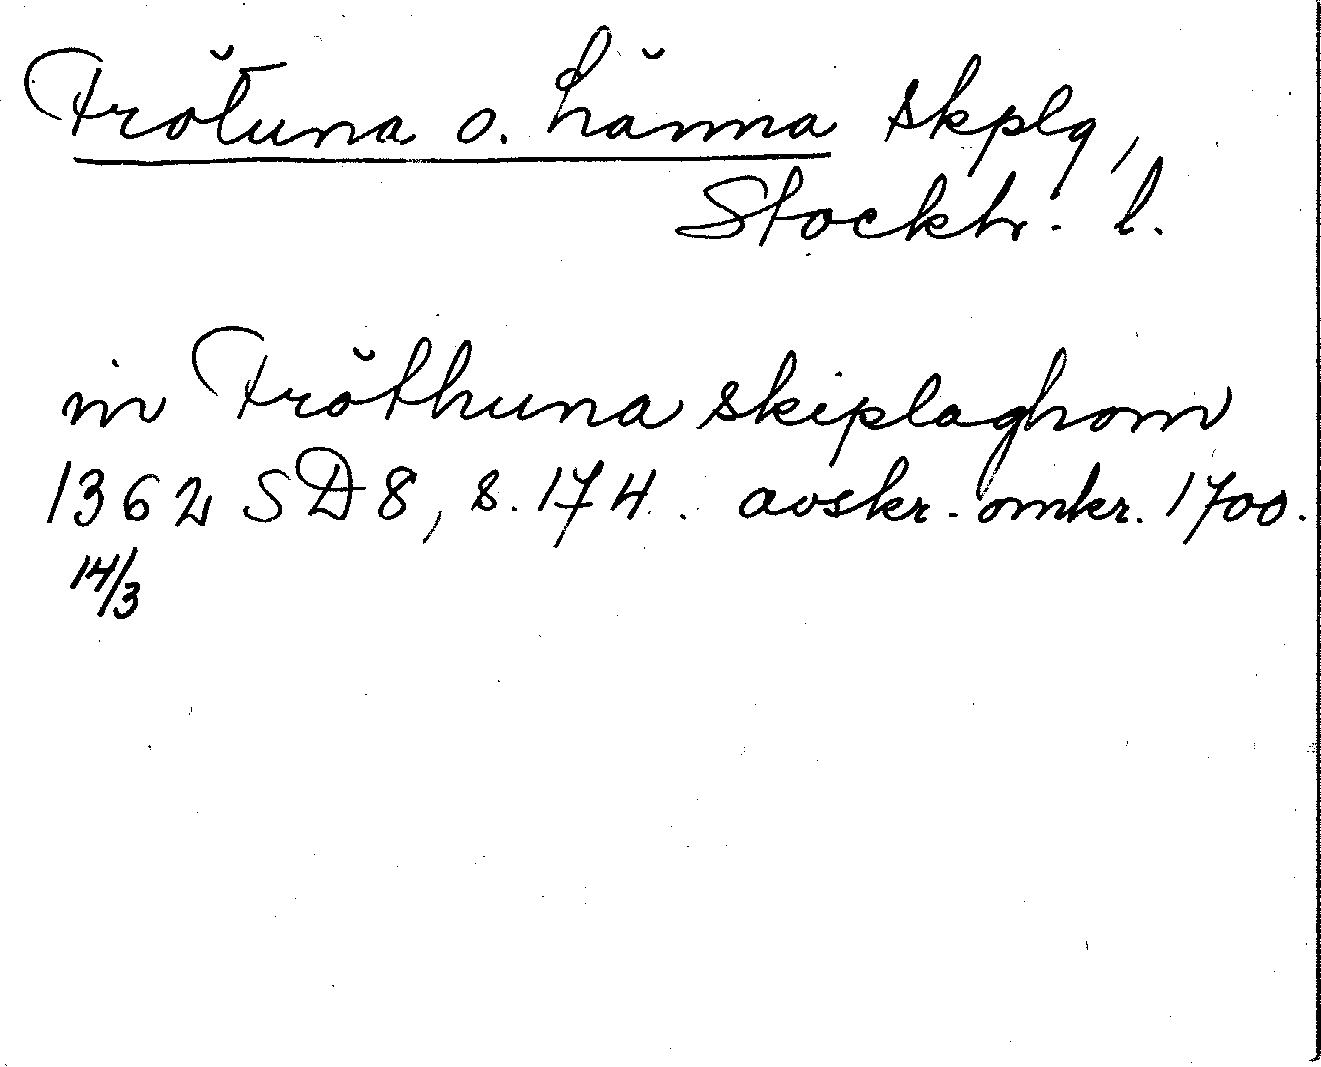 Frötuna o. Länna skplg,
Stockh. l.
in Fröthuna skiplaghom
1362 SD 8, s. 174. avskr. omkr. 1700.
14/3